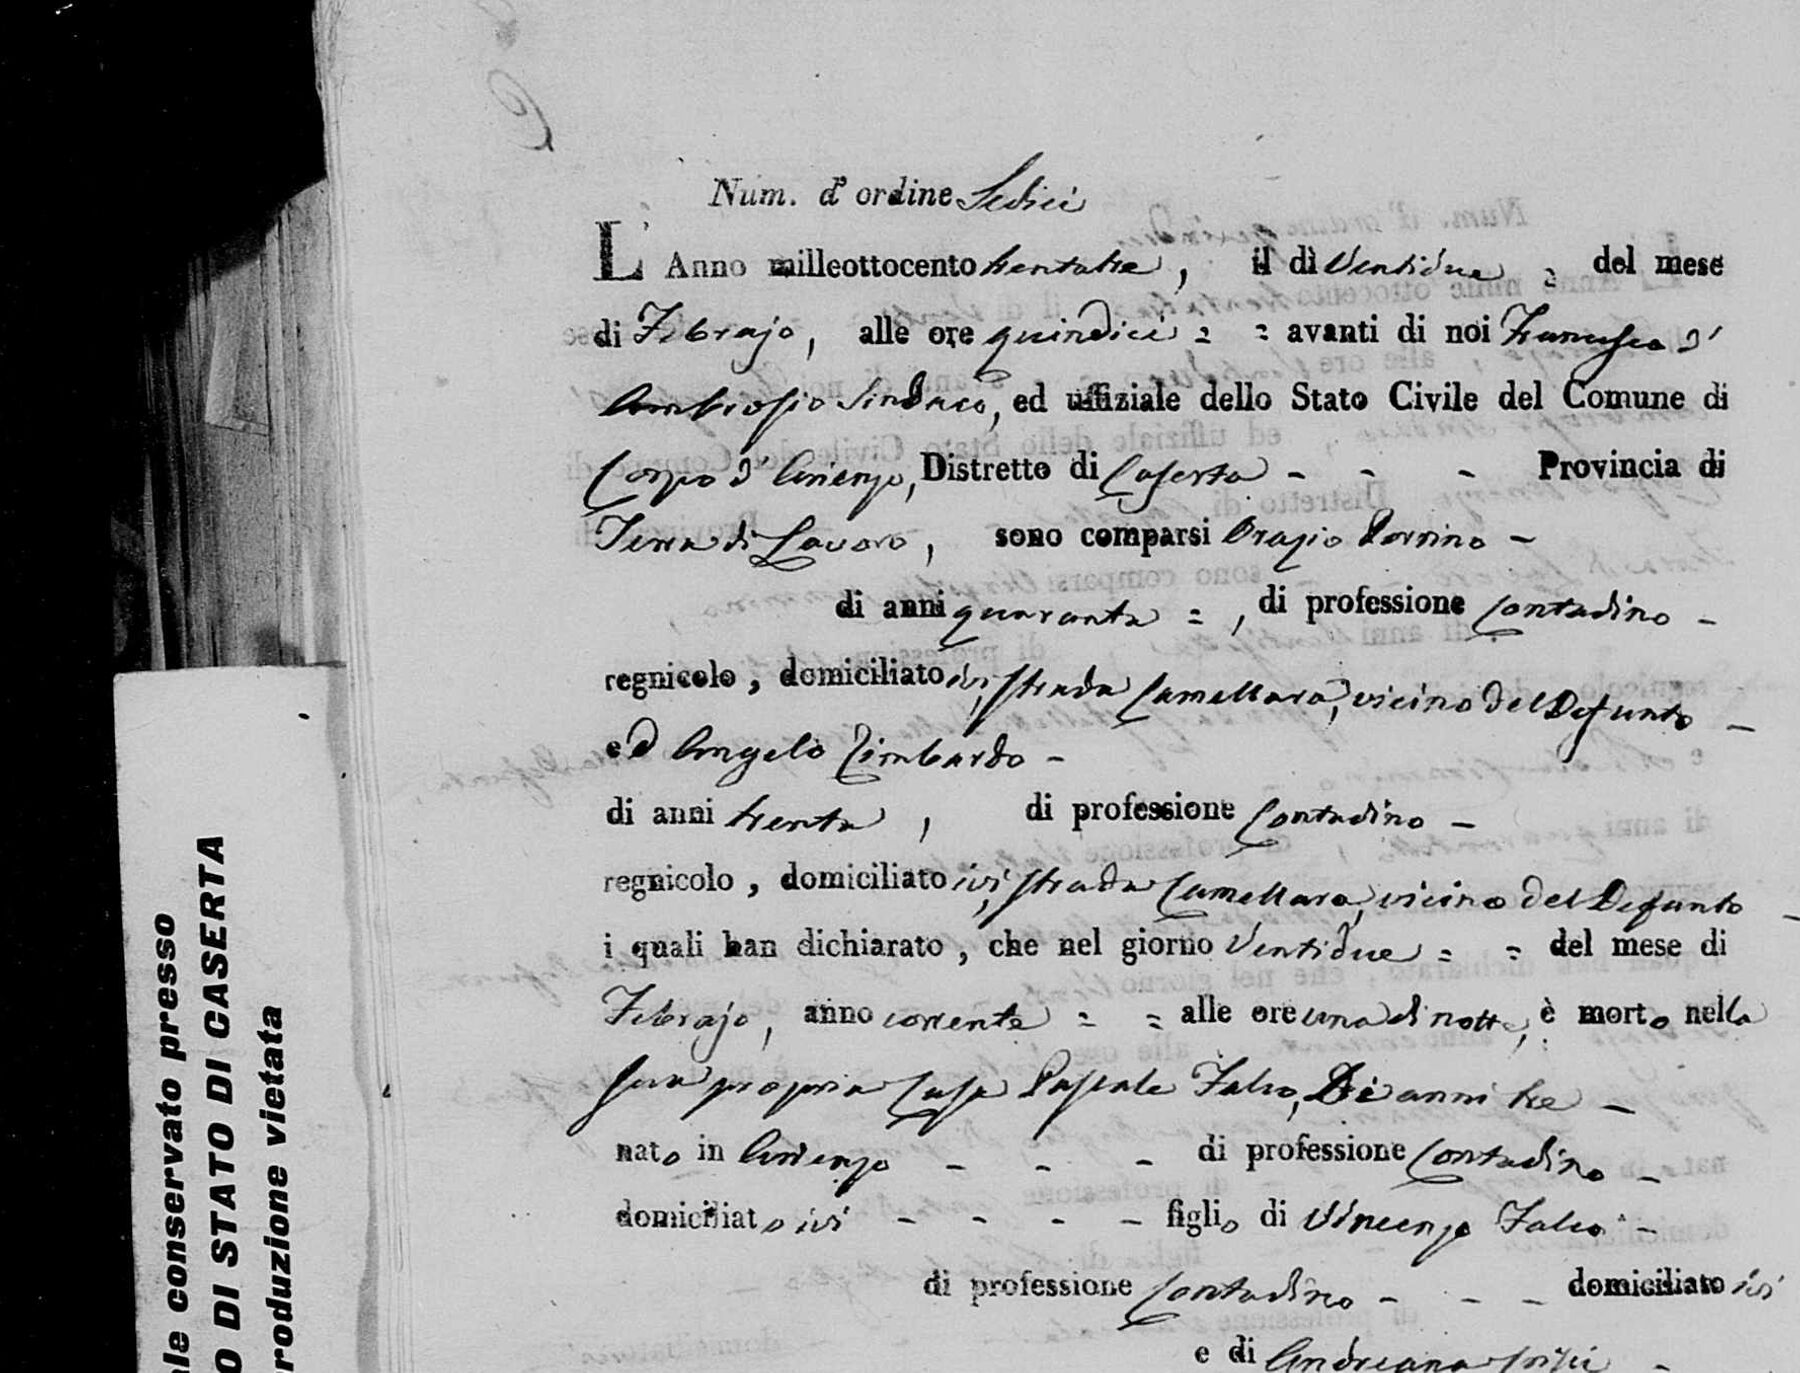 Num. d'ordine Sedici
L'Anno milleottocento trentatre, il dì Ventidue = del mese
di Febrajo, alle ore quindici = = avanti di noi Francesco d'
Ambrosio Sindaco, ed uffiziale dello Stato Civile del Comune di
Corpo d'Arienzo, Distretto di Caserta - - - Provincia di
Terra di Lavoro, sono comparsi Orazio Perrino -
di anni quaranta = , di professione Contadino -
regnicolo, domiciliato ivi, strada Camellara, vicino del Defunto -
ed Angelo Zimbardo -
di anni trenta , di professione Contadino -
regnicolo, domiciliato ivi, strada Camellara, vicino del Defunto -
i quali han dichiarato, che nel giorno Ventidue = = del mese di
Febrajo, anno corrente = = alle ore una di notte, è morto nella
sua propria Casa Pascale Falco, Di anni tre -
nato in Arienzo - - - di professione Contadino -
domiciliato ivi - - - - figlio di Vincenzo Falco -
di professione Contadino - - - domiciliato ivi
e di Andreana -
ale conservato presso
O DI STATO DI CASERTA
roduzione vietata